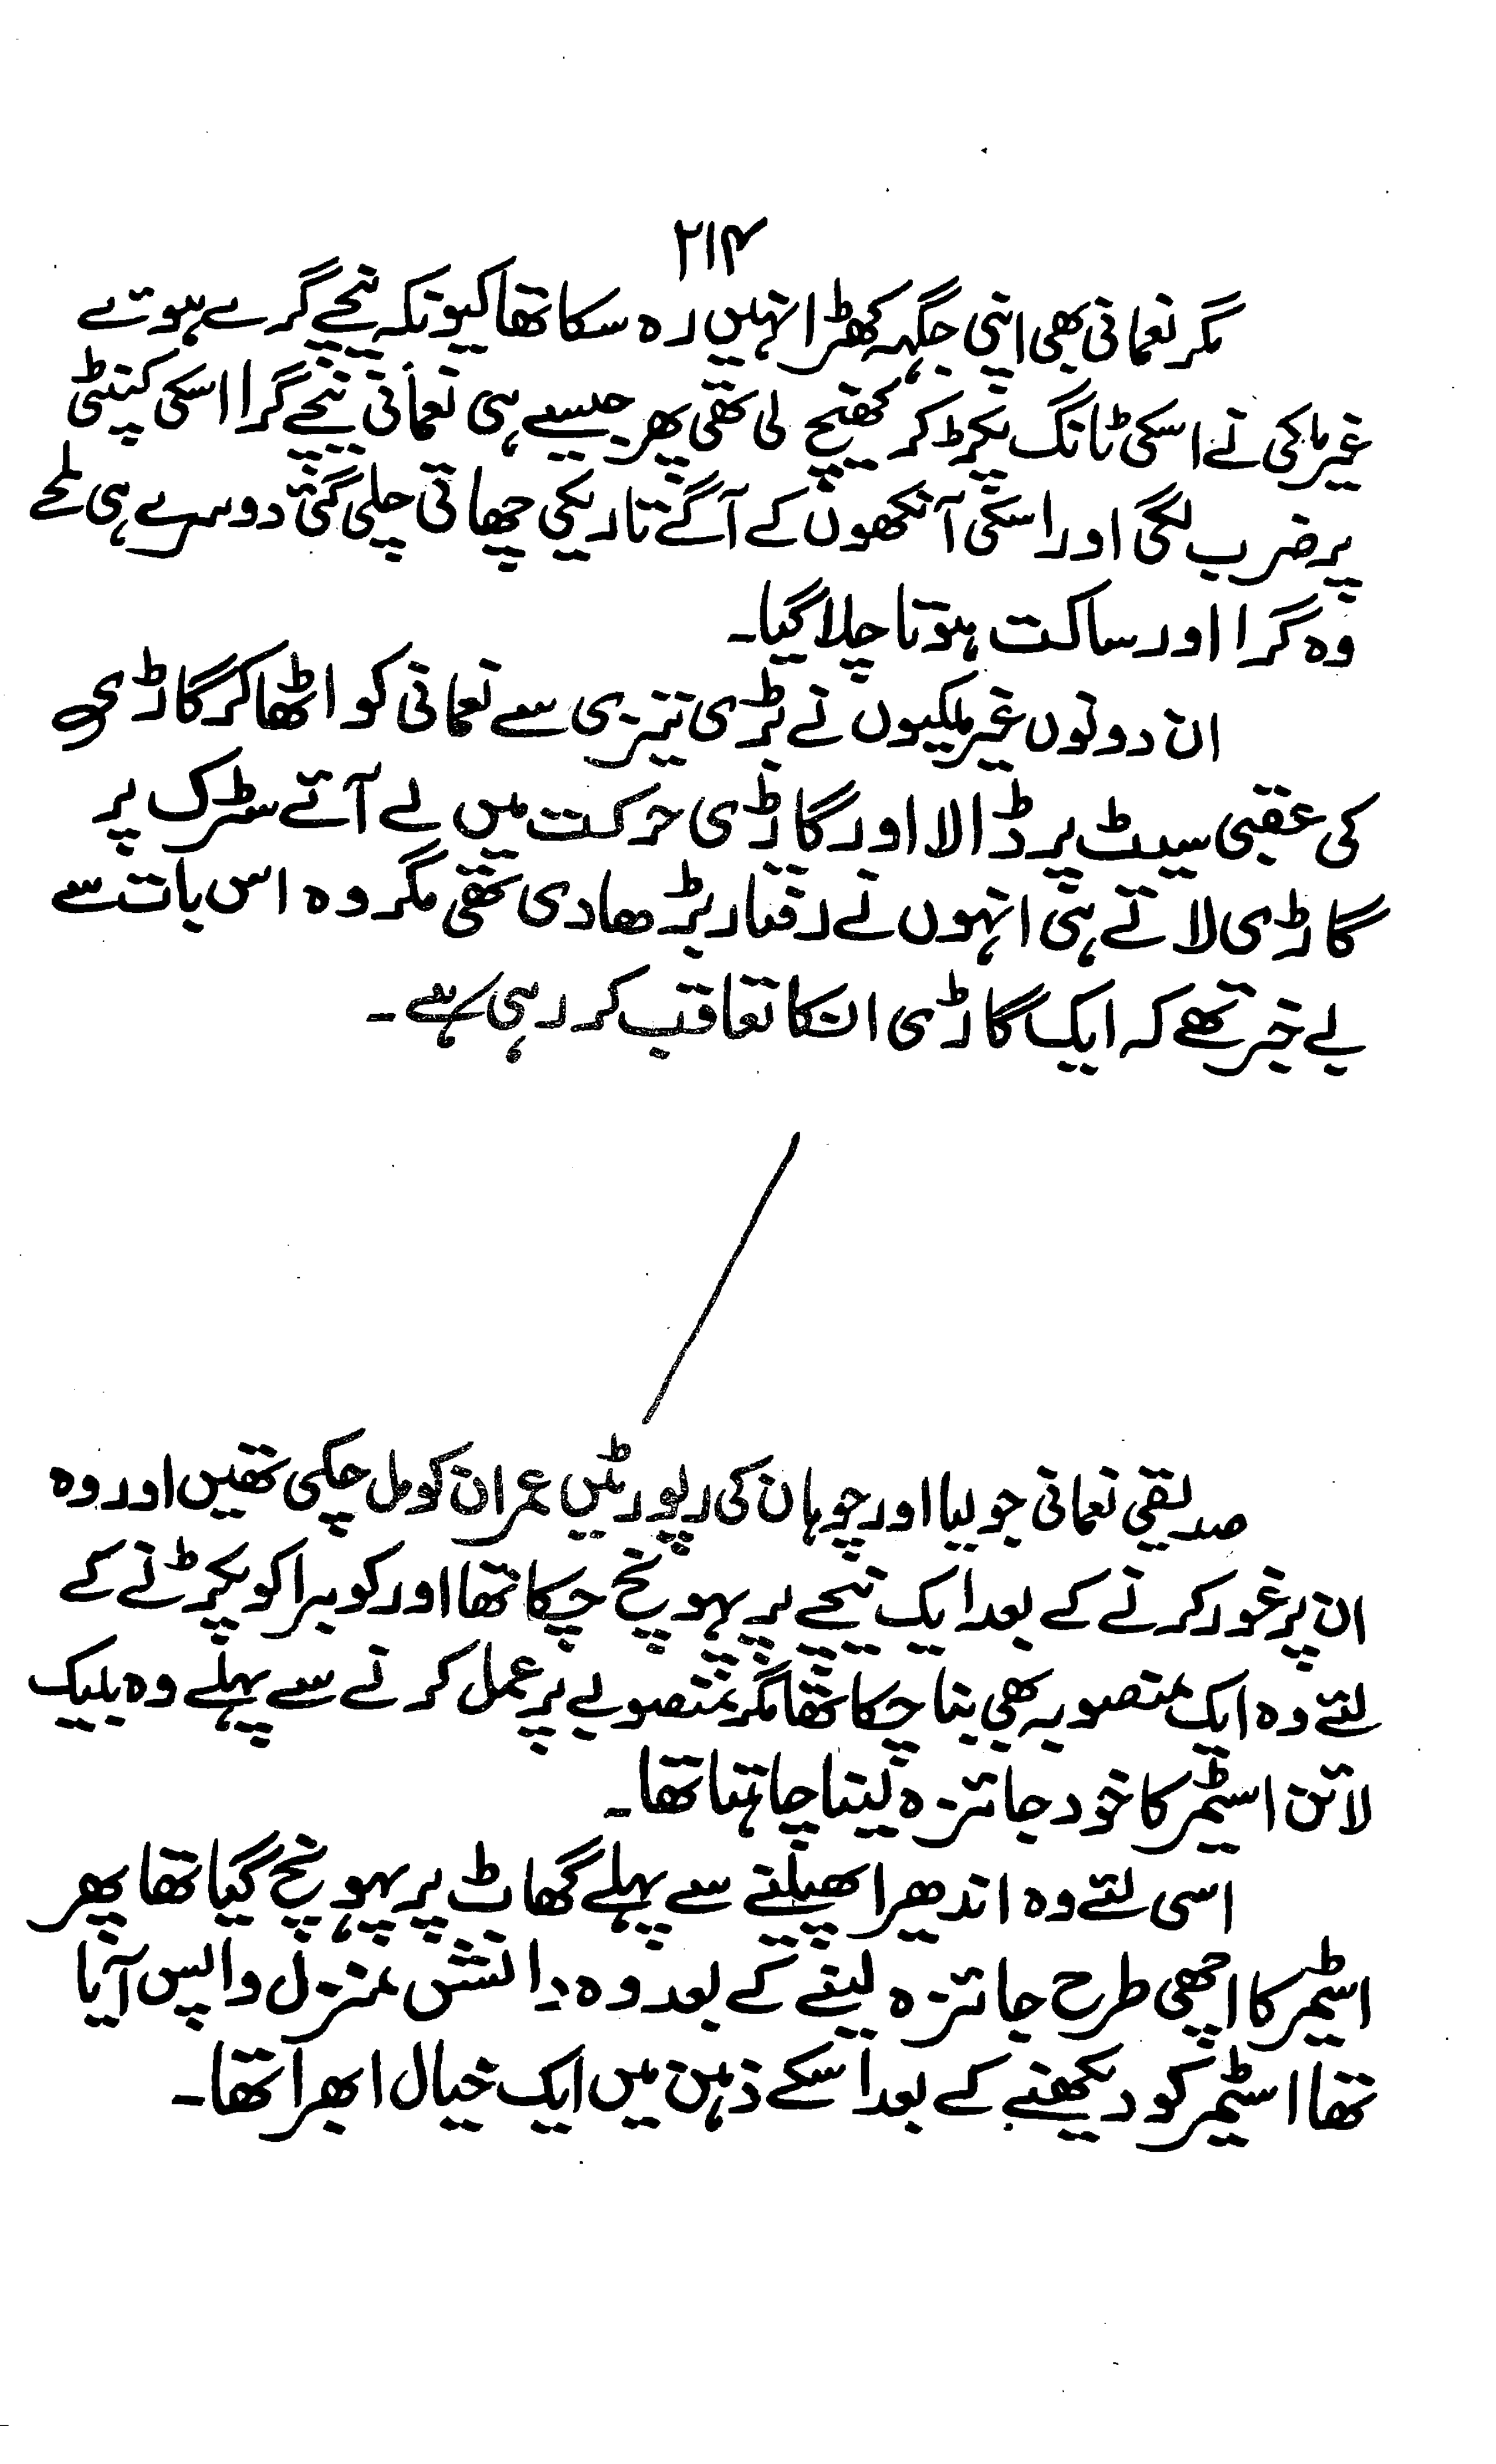 ۲۱۴
مگر نعمانی بھی اپنی جگہ کھڑا نہیں رہ سکا تھا کیونکہ نیچے گرے ہوئے
غیر ملکی نے اسکی ٹانگ پکڑ کر کھینچ لی تھی پھر جیسے ہی نعمانی نیچے گرا اسکی کنپٹی
پر ضرب لگی اور اسکی آنکھوں کے آگے تاریکی چھاتی چلی گئی دوسرے ہی لمحے
وہ گرا اور ساکت ہوتا چلا گیا۔
ان دونوں غیر ملکیوں نے بڑی تیزی سے نعمانی کو اٹھا کر گاڑی
کی عقبی سیٹ پر ڈالا اور گاڑی حرکت میں لے آئے سڑک پر
گاڑی لاتے ہی انہوں نے رفتار بڑھا دی تھی مگر وہ اس بات سے
بے خبر تھے کہ ایک گاڑی انکا تعاقب کر رہی ہے۔
صدیقی نعمانی جولیا اور چوہان کی رپورٹیں عمران کو مل چکی تھیں اور وہ
ان پر غور کرنے کے بعد ایک نتیجے پر پہونچ چکا تھا اور کوبرا کو پکڑنے کے
لئے وہ ایک منصوبہ بھی بنا چکا تھا مگر منصوبے پر عمل کرنے سے پہلے وہ بلیک
لائن اسٹیمر کا خود جائزہ لینا چاہتا تھا۔
اسی لئے وہ اندھیرا پھیلنے سے پہلے گھاٹ پر پہونچ گیا تھا پھر
اسٹیمر کا اچھی طرح جائزہ لینے کے بعد وہ دانش منزل واپس آیا
تھا اسٹیمر کو دیکھنے کے بعد اسکے ذہن میں ایک خیال ابھرا تھا۔